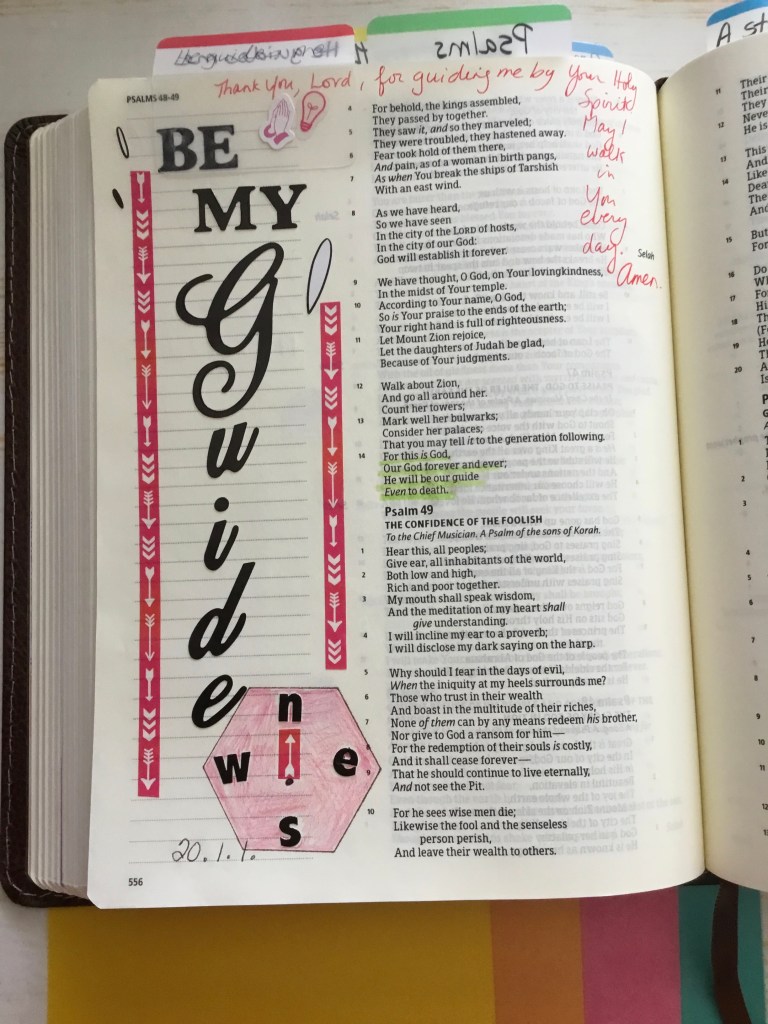 Psalms
Thank You, Lord, for guiding me by Your Holy
Spirit.
May I
walk
in
You
every
day.
Amen.
PSALMS 48-49
BE
MY
Guide
n
w e
s
20.1.1.
556
4 For behold, the kings assembled,
They passed by together.
5 They saw it, and so they marveled;
They were troubled, they hastened away.
6 Fear took hold of them there,
And pain, as of a woman in birth pangs,
7 As when You break the ships of Tarshish
With an east wind.
8 As we have heard,
So we have seen
In the city of the LORD of hosts,
In the city of our God:
God will establish it forever. Selah
9 We have thought, O God, on Your lovingkindness,
In the midst of Your temple.
10 According to Your name, O God,
So is Your praise to the ends of the earth;
Your right hand is full of righteousness.
11 Let Mount Zion rejoice,
Let the daughters of Judah be glad,
Because of Your judgments.
12 Walk about Zion,
And go all around her.
Count her towers;
13 Mark well her bulwarks;
Consider her palaces;
That you may tell it to the generation following.
14 For this is God,
Our God forever and ever;
He will be our guide
Even to death.
Psalm 49
THE CONFIDENCE OF THE FOOLISH
To the Chief Musician. A Psalm of the sons of Korah.
1 Hear this, all peoples;
Give ear, all inhabitants of the world,
2 Both low and high,
Rich and poor together.
3 My mouth shall speak wisdom,
And the meditation of my heart shall
give understanding.
4 I will incline my ear to a proverb;
I will disclose my dark saying on the harp.
5 Why should I fear in the days of evil,
When the iniquity at my heels surrounds me?
6 Those who trust in their wealth
And boast in the multitude of their riches,
7 None of them can by any means redeem his brother,
Nor give to God a ransom for him—
8 For the redemption of their souls is costly,
And it shall cease forever—
9 That he should continue to live eternally,
And not see the Pit.
10 For he sees wise men die;
Likewise the fool and the senseless
person perish,
And leave their wealth to others.
11 Their
They
12
He is
13 This
And
14 Like
The
And
15 But
For
16 Do
17
18
19
20